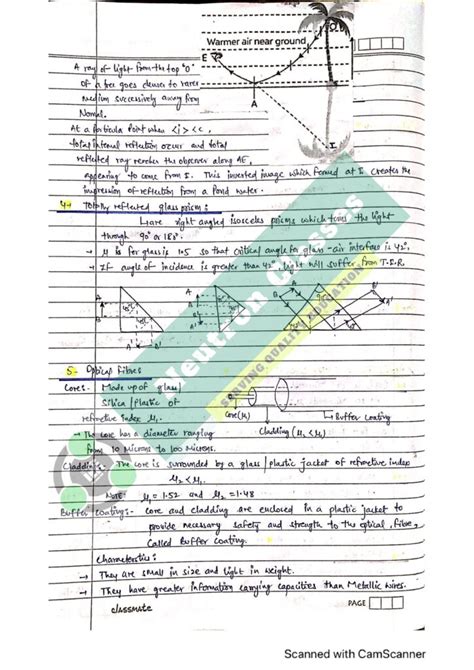 Warmer air near ground
E
A
I
A ray of light from the top "O"
of a tree goes denser to rarer
medium successively away from
Normal.
At a particular point when <i> > <c,
total internal reflection occur and total
reflected ray reaches the observer along AE,
appearing to come from I. This inverted image which formed at I, creates the
impression of reflection from a Pond water.
4- Totally reflected glass prism:
are right angled isosceles prisms which turns the light
through 90° or 180°.
→ μ is for glass is 1.5 so that critical angle for glass-air interface is 42°,
→ If angle of incidence is greater than 42°, light will suffer from T.I.R.
5- Optical Fibres
Core:- Made up of glass/
Silica/plastic of
refractive index μ₁.
Core(μ₁)
Cladding (μ₂<μ₁)
Buffer Coating
→ The core has a diameter ranging
from 10 Microns to 100 Microns.
Cladding:- The core is surrounded by a glass/plastic jacket of refractive index
μ₂<μ₁.
Note: μ₁ = 1.52 and μ₂ = 1.48
Buffer Coating:- Core and cladding are enclosed in a plastic jacket to
provide necessary safety and strength to the optical fibre,
called Buffer Coating.
Characteristics:
→ They are small in size and light in weight.
→ They have greater information carrying capacities than Metallic wires.
classmate
PAGE
Neutron Classes
SERVING QUALITY EDUCATION
Scanned with CamScanner